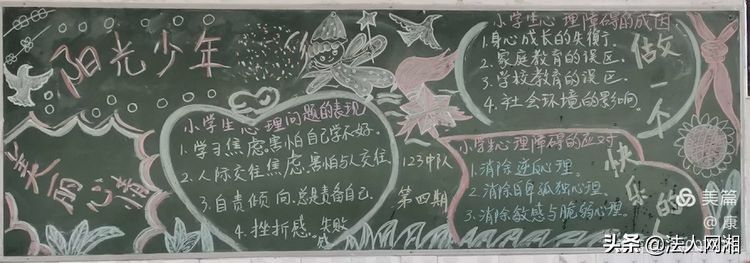 阳光少年
美丽心情
小学生心理问题的表现
1.学习焦虑.害怕自己学不好.
2.人际交往焦虑.害怕与人交往.
3.自责倾向.总是责备自己.
4.挫折感.失败感
123中队
第四期
小学生心理障碍的成因
1.身心成长的失衡.
2.家庭教育的误区.
3.学校教育的误区.
4.社会环境的影响.
小学生心理障碍的应对
1.消除逆反心理.
2.消除自卑孤独心理.
3.消除敏感与脆弱心理.
做一个
快乐的
美篇
@康
头条 @法人网湘